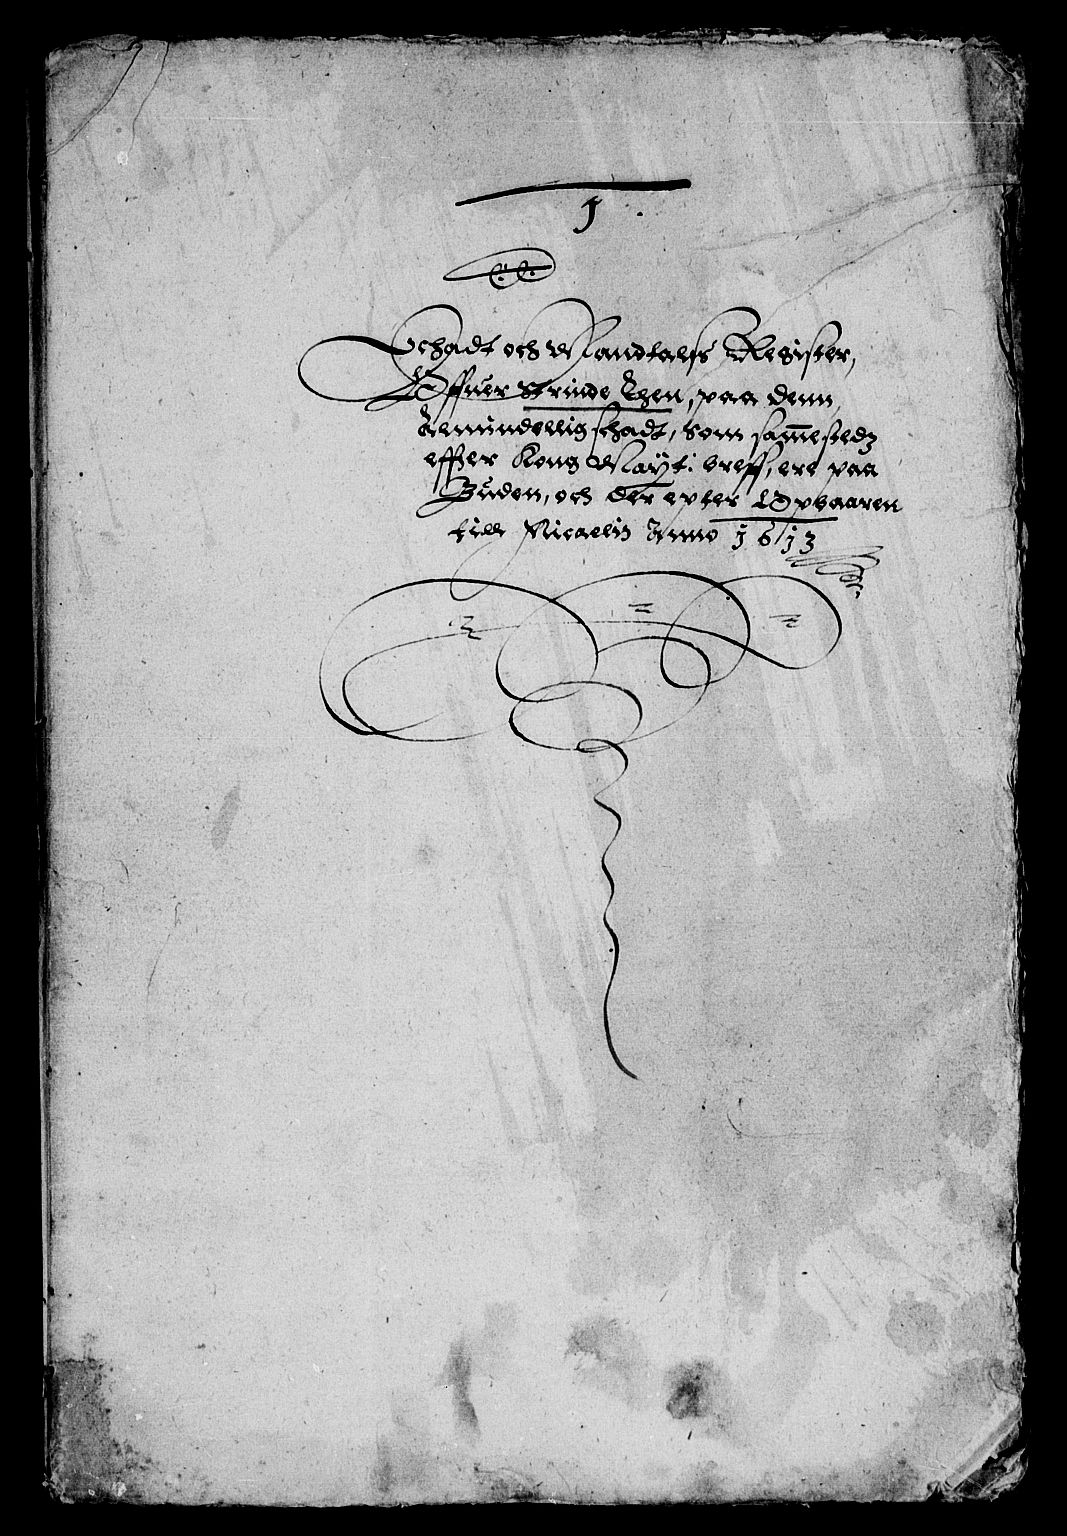 1
Schadt och Mandtals Register,
Offuer Strinde Lhen, paa denn
Almindellig schadt, som sam̄estedz
effter Kong Mayt: breff, ere paa
Buden, och der epter Opbaaren
till Micaelis Anno 1613